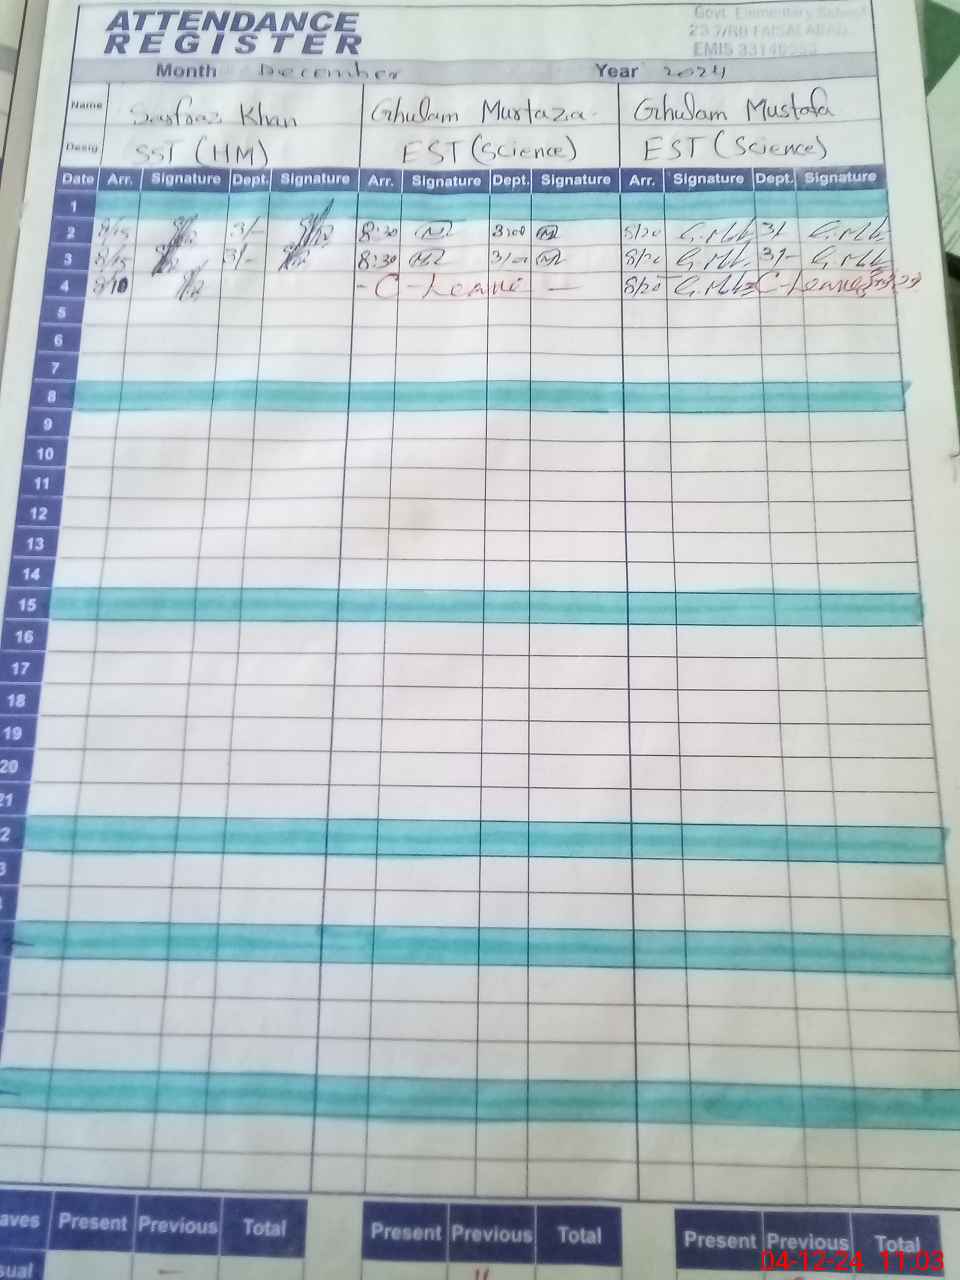 ATTENDANCE
REGISTER
Govt. Elementary School
EMIS
Month December Year 2024
Name Sarfraz Khan Ghulam Murtaza Ghulam Mustafa
Desig SST (HM) EST (Science) EST (Science)
Date Arr. Signature Dept. Signature Arr. Signature Dept. Signature Arr. Signature Dept. Signature
1
2 8/15 3/- 8:30 3:00 8/20 3/-
3 8/15 3/- 8:30 3/00 8/20 3/-
4 8/10 - C-Leave - 8/20 C-Leave
5
6
7
8
9
10
11
12
13
14
15
16
17
18
19
20
21
2
3
aves Present Previous Total Present Previous Total Present Previous Total
sual
04-12-24 11:03